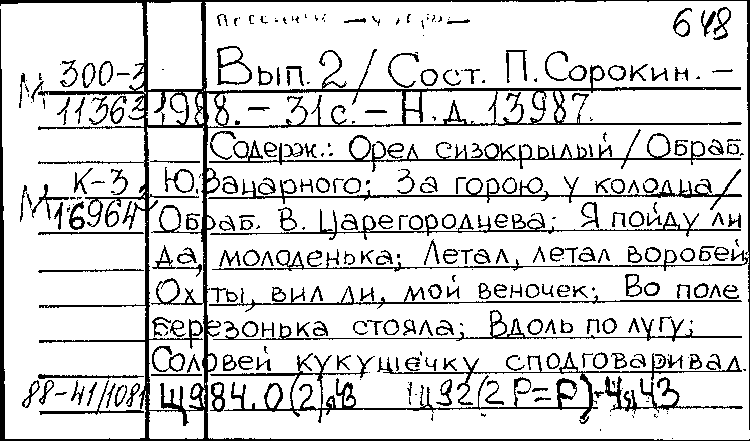 648
М 300-3 Вып. 2 / Сост. П. Сорокин. –
11363 1988. – 31 с. – Н. д. 13987.
Содерж.: Орел сизокрылый / Обраб.
М К-3 Ю. Зацарного; За горою, у колодца /
16964 Обраб. В. Царегородцева; Я пойду ли
да, молоденька; Летал, летал воробей;
Ох ты, вил ли, мой веночек; Во поле
березонька стояла; Вдоль по лугу;
Соловей кукушечку сподговаривал.
88-41/1081 Щ984.0(2)я43 Щ92(2Р=Р)-4я43